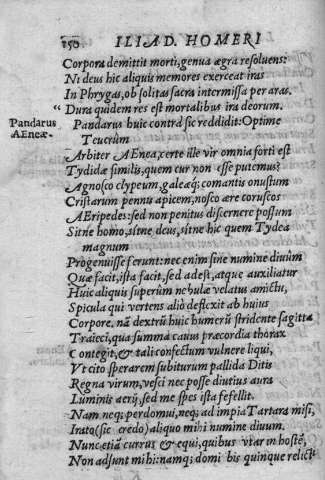 250 ILIAD. HOMERI
Corpora demittit morti, genua ægra resoluens:
Ni deus hic aliquis memores exerceat iras
In Phrygas, ob solitas sacra intermissa per aras.
“ Dura quidem res est mortalibus ira deorum.
Pandarus
AEneæ.
Pandarus huic contra sic reddidit: Optime
Teucrûm
Arbiter AEnea, certe ille vir omnia forti est
Tydidæ similis, quem cur non esse putemus?
Agnosco clypeum, galeaq; comantis onustum
Cristarum pennis apicem, nosco ære coruscos
AEripedes: sed non penitus discernere possum
Sitne homo, sitne deus, sitne hic quem Tydea
magnum
Progenuisse ferunt: nec enim sine numine diuûm
Quæ facit, ista facit, sed adest, atque auxiliatur
Huic aliquis superûm nebulæ velatus amictu,
Spicula qui vertens aliò deflexit ab huius
Corpore. nā dextrū huic humerū stridente sagitta
Traieci, qua summa cauus præcordia thorax
Contegit, & tali confectum vulnere liqui,
Vt cito sperarem subiturum pallida Ditis
Regna virum, vesci nec posse diutius aura
Luminis aerij, sed me spes ista fefellit.
Nam neq; perdomui, neq; ad impia Tartara misi,
Irato (sic credo) aliquo mihi numine diuum.
Nunc etiā currus & equi, quibus vtar in hostē,
Non adsunt mihi: namq; domi bis quinque relicti